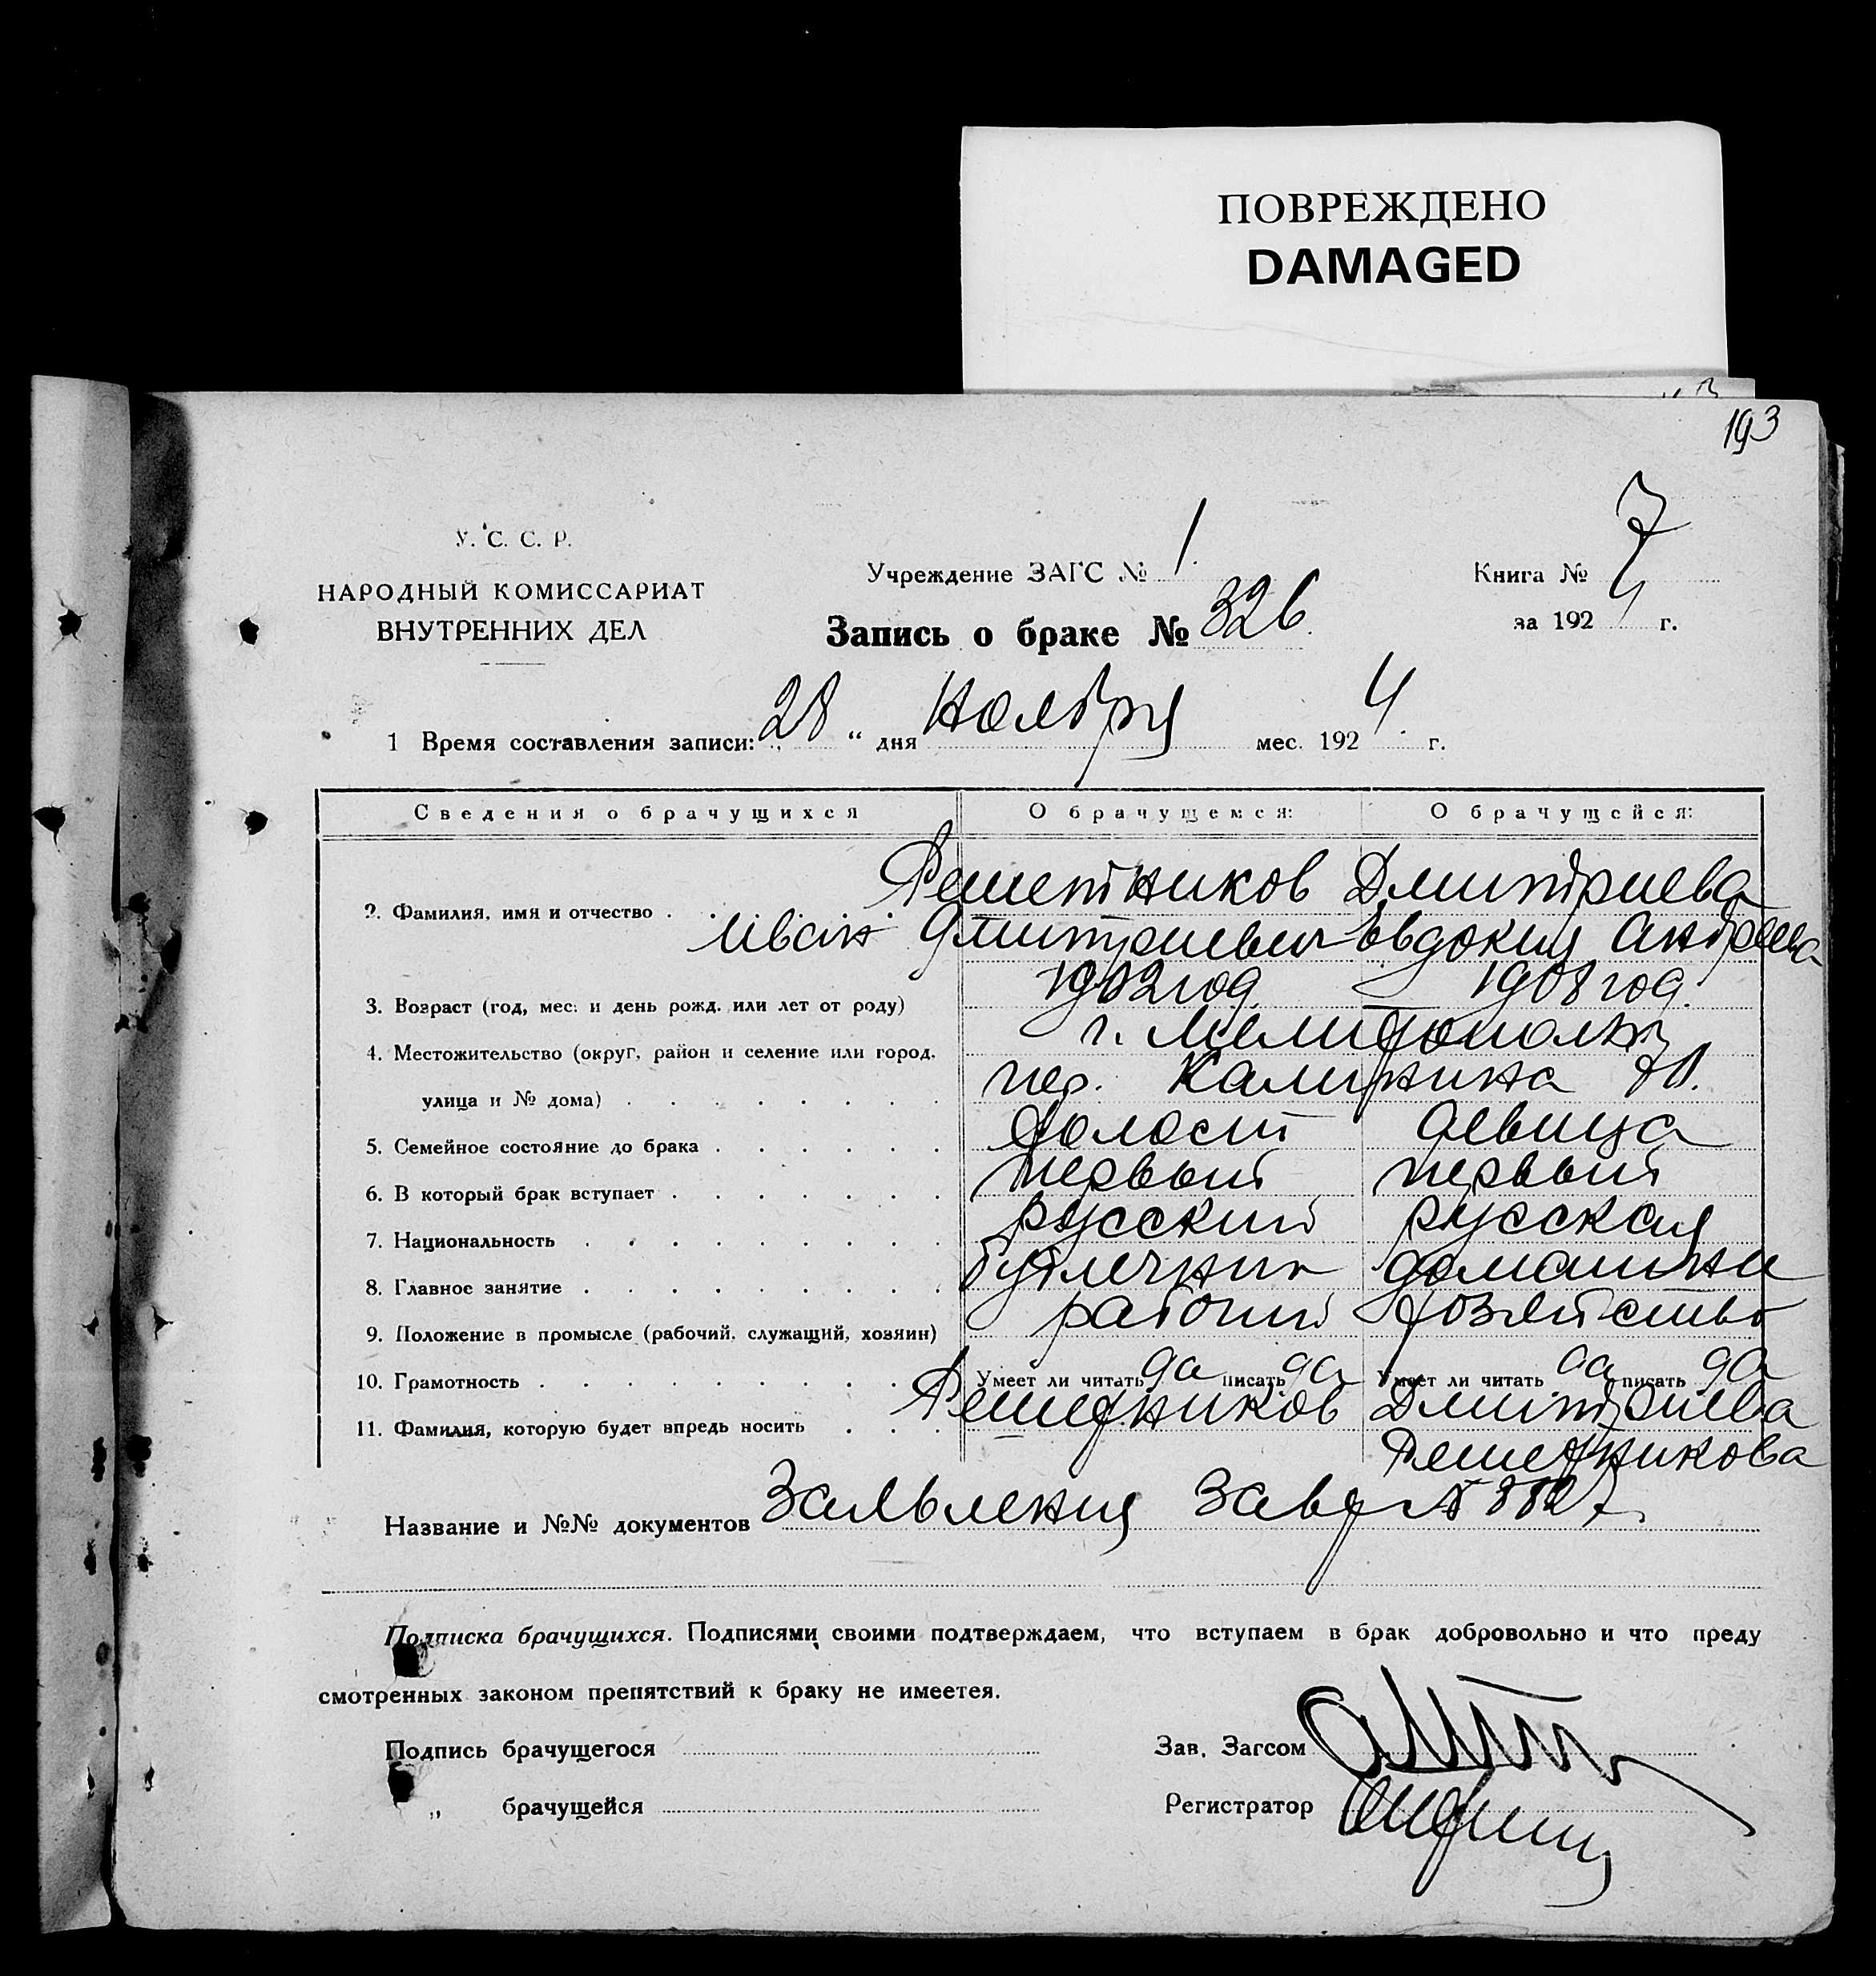 ПОВРЕЖДЕНО
DAMAGED
193
У. С. С. Р.
НАРОДНЫЙ КОМИССАРИАТ
ВНУТРЕННИХ ДЕЛ
Учреждение ЗАГС № 1.
Запись о браке № 326.
Книга № 7
за 1924 г.
1 Время составления записи: „28“ дня Ноября мес. 1924 г.
Сведения о брачущихся О брачущемся: О брачущейся:
Решетников Дмитриева
2. Фамилия, имя и отчество . . Иван Дмитриевич Евдокия Андреева
3. Возраст (год, мес. и день рожд. или лет от роду) 1902 год 1908 год.
4. Местожительство (округ, район и селение или город, г. Мелитополь
улица и № дома) . . . . . . . . пер. Калинина
5. Семейное состояние до брака . . . . . . холост девица
6. В который брак вступает . . . . . . . первый первый
7. Национальность . . . . . . . . . русский русская
8. Главное занятие . . . . . . . . . домашнее
9. Положение в промысле (рабочий, служащий, хозяин) рабочий хозяйство
10. Грамотность . . . . . . . . . Умеет ли читать да писать да Умеет ли читать да писать да
11. Фамилия, которую будет впредь носить . . . Решетников Дмитриева
Решетникова
Название и №№ документов Заявления
Подписка брачущихся. Подписями своими подтверждаем, что вступаем в брак добровольно и что преду
смотренных законом препятствий к браку не имеетея.
Подпись брачущегося
Зав. Загсом
„ брачущейся
Регистратор